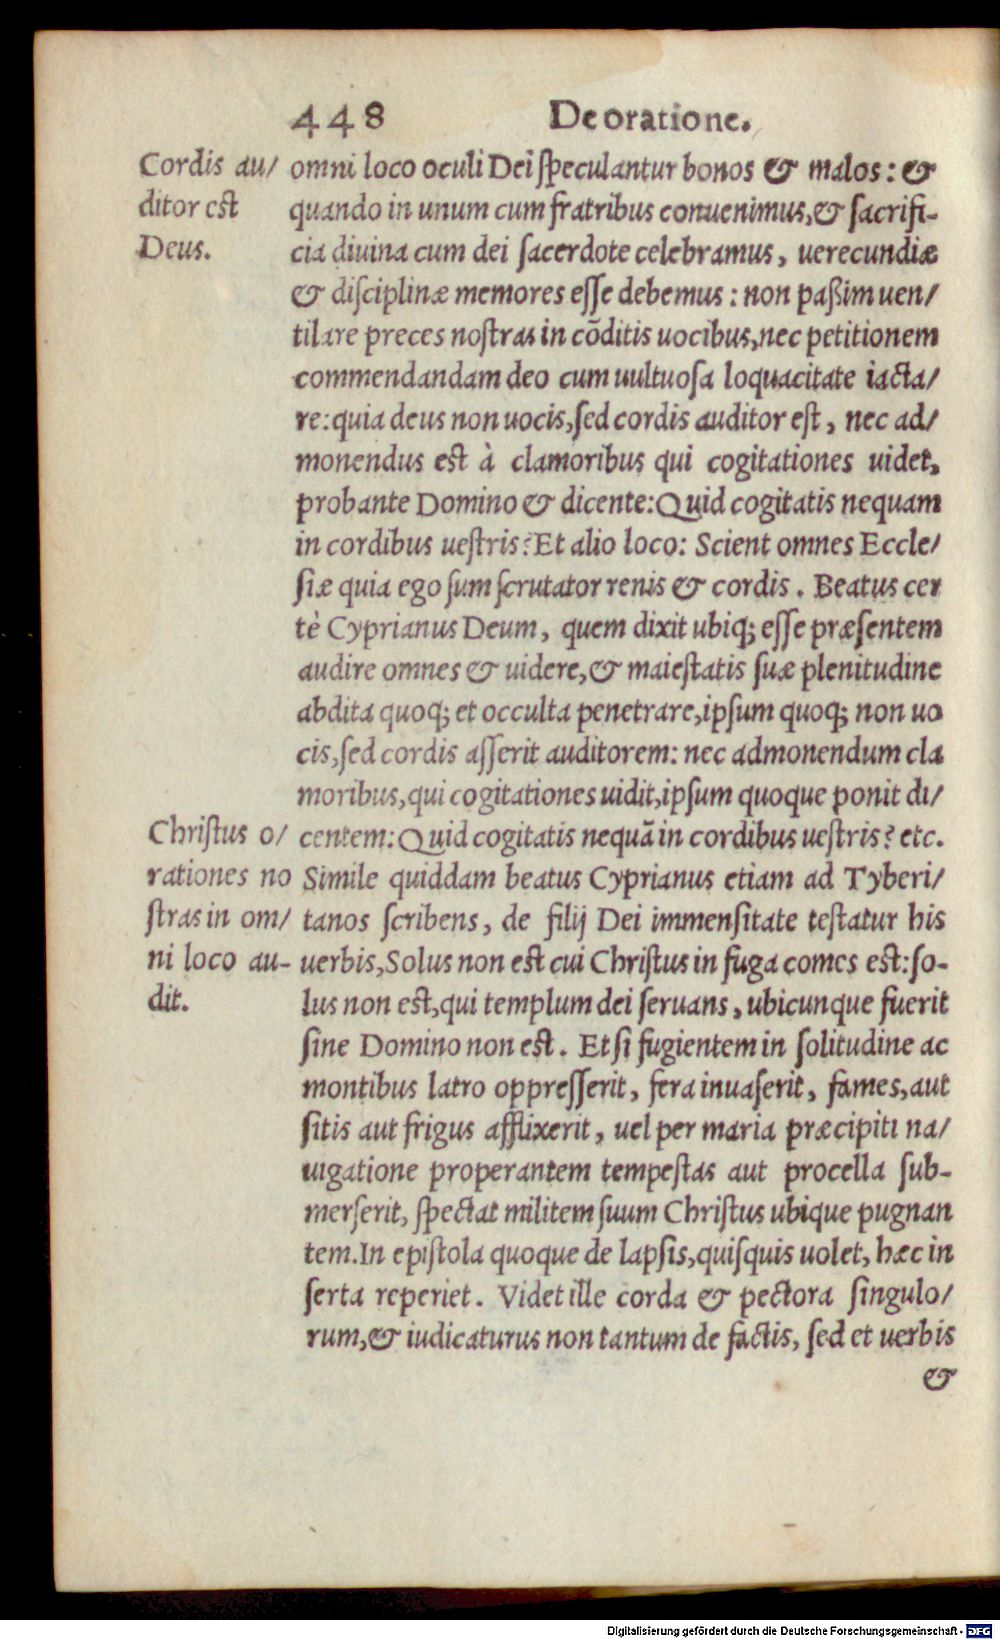 448 De oratione.
Cordis au/
ditor est
Deus.
omni loco oculi Dei speculantur bonos & malos: &
quando in unum cum fratribus conuenimus, & sacrifi-
cia diuina cum dei sacerdote celebramus, uerecundiæ
& disciplinæ memores esse debemus: non paßim uen/
tilare preces nostras in cōditis uocibus, nec petitionem
commendandam deo cum uultuosa loquacitate iacta/
re: quia deus non uocis, sed cordis auditor est, nec ad/
monendus est à clamoribus qui cogitationes uidet,
probante Domino & dicente: Quid cogitatis nequam
in cordibus uestris? Et alio loco: Scient omnes Eccle/
siæ quia ego sum scrutator renis & cordis. Beatus cer
tè Cyprianus Deum, quem dixit ubiq; esse præsentem
audire omnes & uidere, & maiestatis suæ plenitudine
abdita quoq; et occulta penetrare, ipsum quoq; non uo
cis, sed cordis asserit auditorem: nec admonendum cla
moribus, qui cogitationes uidit, ipsum quoque ponit di/
centem: Quid cogitatis nequā in cordibus uestris? etc.
Christus o/
rationes no
stras in om/
ni loco au-
dit.
Simile quiddam beatus Cyprianus etiam ad Tyberi/
tanos scribens, de filij Dei immensitate testatur his
uerbis, Solus non est cui Christus in fuga comes est: so-
lus non est, qui templum dei seruans, ubicunque fuerit
sine Domino non est. Et si fugientem in solitudine ac
montibus latro oppresserit, fera inuaserit, fames, aut
sitis aut frigus afflixerit, uel per maria præcipiti na/
uigatione properantem tempestas aut procella sub-
merserit, spectat militem suum Christus ubique pugnan
tem. In epistola quoque de lapsis, quisquis uolet, hæc in
serta reperiet. Videt ille corda & pectora singulo/
rum, & iudicaturus non tantum de factis, sed et uerbis
&
Digitalisierung gefördert durch die Deutsche Forschungsgemeinschaft - DFG